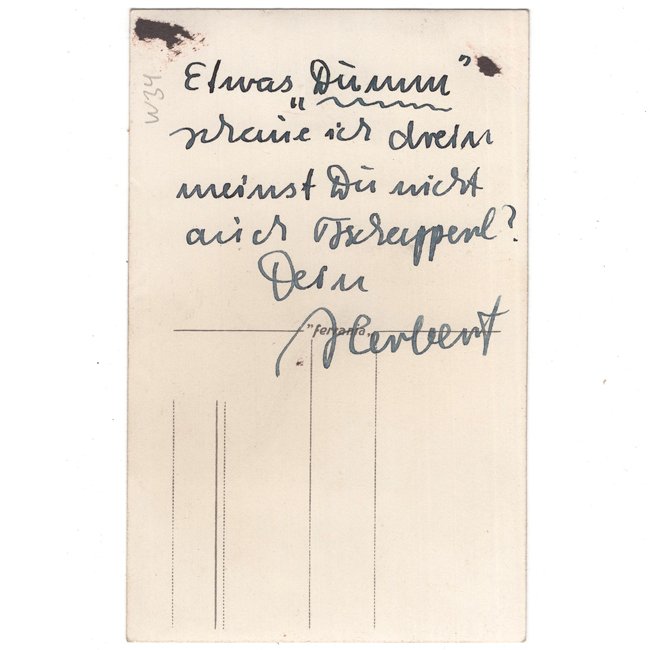 W34
Etwas „Dumm"
schaue ich drein
meinst Du nicht
auch Tschapperl?
Dein
"ferrania"
Herbert